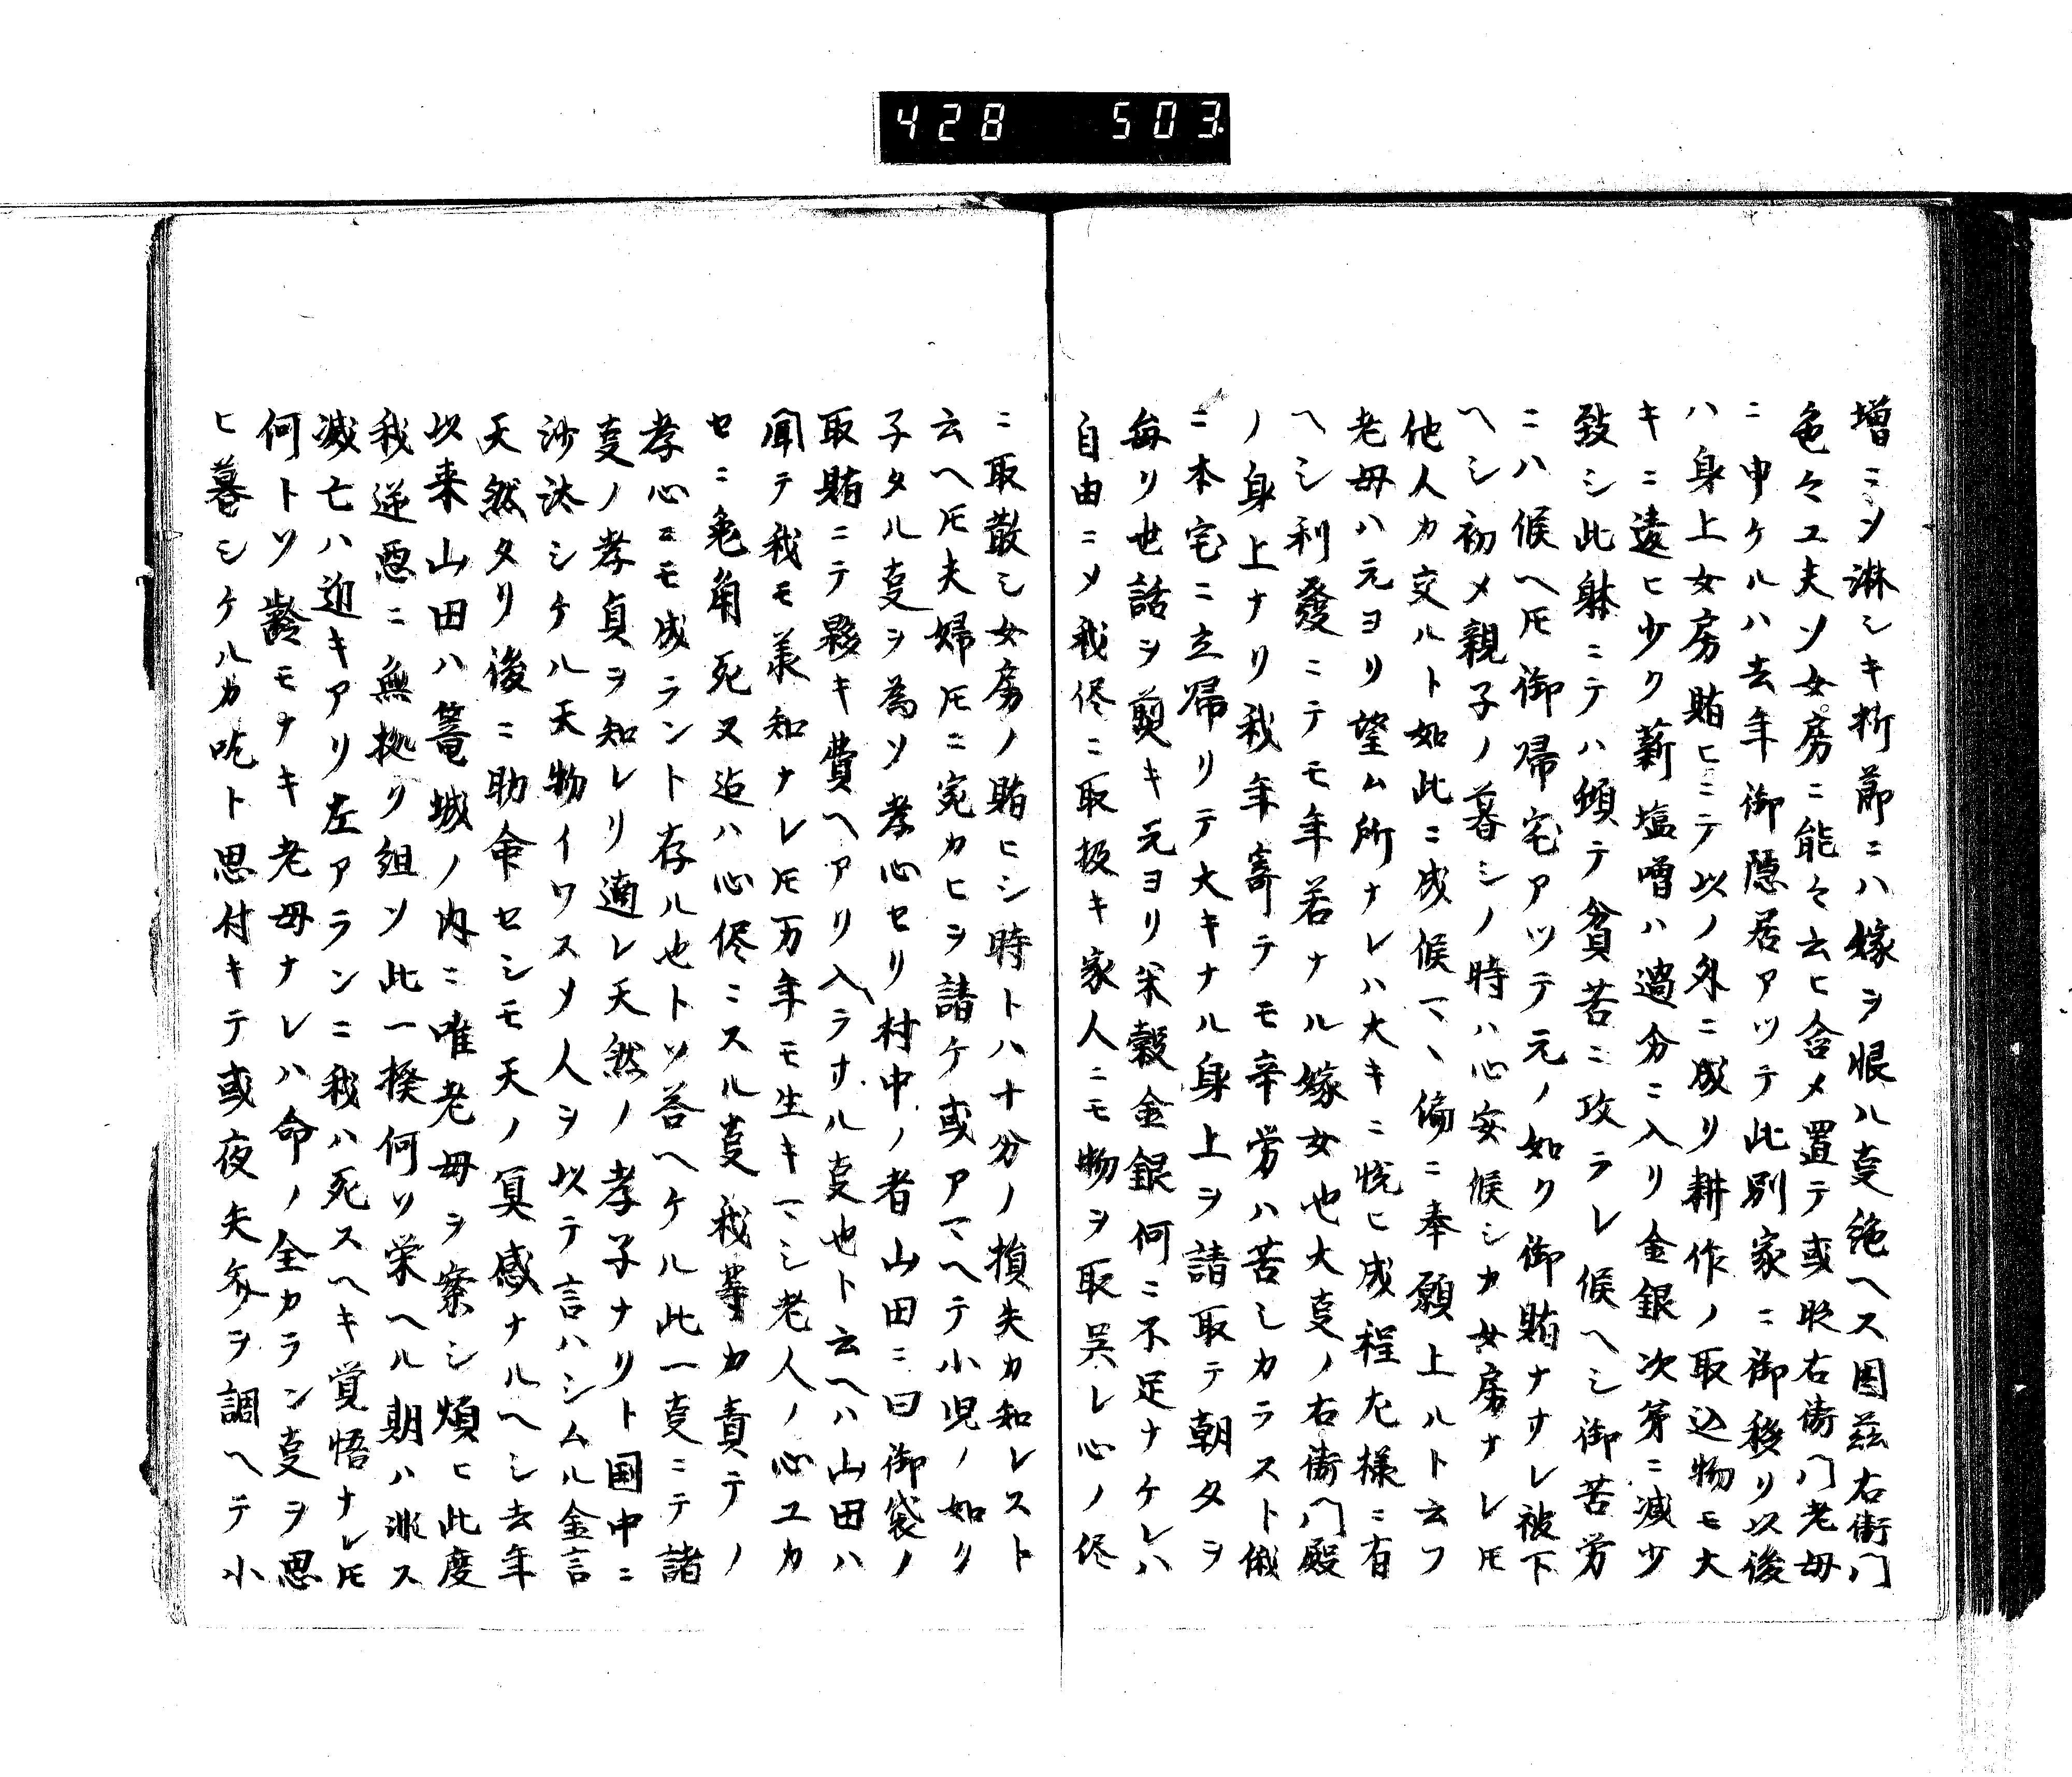 428 503
増ニメ淋シキ折節ニハ嫁ヲ恨ル㕝絶ヘス因茲右衛門
色々ユ夫ソ女房ニ能々云ヒ含メ置テ或時右衛門老母
ニ申ケルハ去年御隠居アツテ此別家ニ御移リ以後
ハ身上女房賄ヒニテ以ノ外ニ成リ耕作ノ取込物モ大
キニ違ヒ少ク薪塩噌ハ過分ニ入リ金銀次第ニ減少
致シ此躰ニテハ頓テ貧苦ニ攻ラレ候ヘシ御苦労
ニハ候ヘ𪜈御帰宅アツテ元ノ如ク御賄ナサレ被下
ヘシ初メ親子ノ暮シノ時ハ心安候シカ女房ナレ𪜈
他人カ交ルト如此ニ成候マヽ偏ニ奉願上ルト云フ
老母ハ元ヨリ望ム所ナレハ大キニ悦ヒ成程左様ニ有
ヘシ利發ニテモ年若ナル嫁女也大㕝ノ右衛門殿
ノ身上ナリ我年寄テモ辛労ハ苦シカラスト俄
ニ本宅ニ立帰リテ大キナル身上ヲ請取テ朝夕ヲ
毎リ世話ヲ焼キ元ヨリ米穀金銀何ニ不足ナケレハ
自由ニメ我侭ニ取扱キ家人ニモ物ヲ取呉レ心ノ侭
ニ取散シ女房ノ賄ヒシ時トハ十分ノ損失カ知レスト
云ヘ𪜈夫婦𪜈ニ宛カヒヲ請ケ或アマヘテ小児ノ如ク
子タル㕝ヲ為ソ孝心セリ村中ノ者山田ニ曰御袋ノ
取賄ニテ夥キ費ヘアリ入ラサル㕝也ト云ヘハ山田ハ
聞テ我モ承知ナレ𪜈万年モ生キマシ老人ノ心ユカ
セニ亀角死又迄ハ心侭ニスル㕝我等カ責テノ
孝心ニモ成ラント存ル也トソ答ヘケル此一㕝ニテ諸
㕝ノ孝貞ヲ知レリ適レ天然ノ孝子ナリト国中ニ
沙汰シケル天物イワスメ人ヲ以テ言ハシムル金言
天然タリ後ニ助命セシモ天ノ冥感ナルヘシ去年
以来山田ハ篭城ノ内ニ唯老母ヲ案シ煩ヒ此度
我逆悪ニ無拠リ組ソ此一揆何ソ栄ヘル期ハ非ス
滅亡ハ近キアリ左アランニ我ハ死スヘキ覚悟ナレ𪜈
何トソ齢モナキ老母ナレハ命ノ全カラン㕝ヲ思
ヒ暮シケルカ吃ト思付キテ或夜矢弥ヲ調ヘテ小